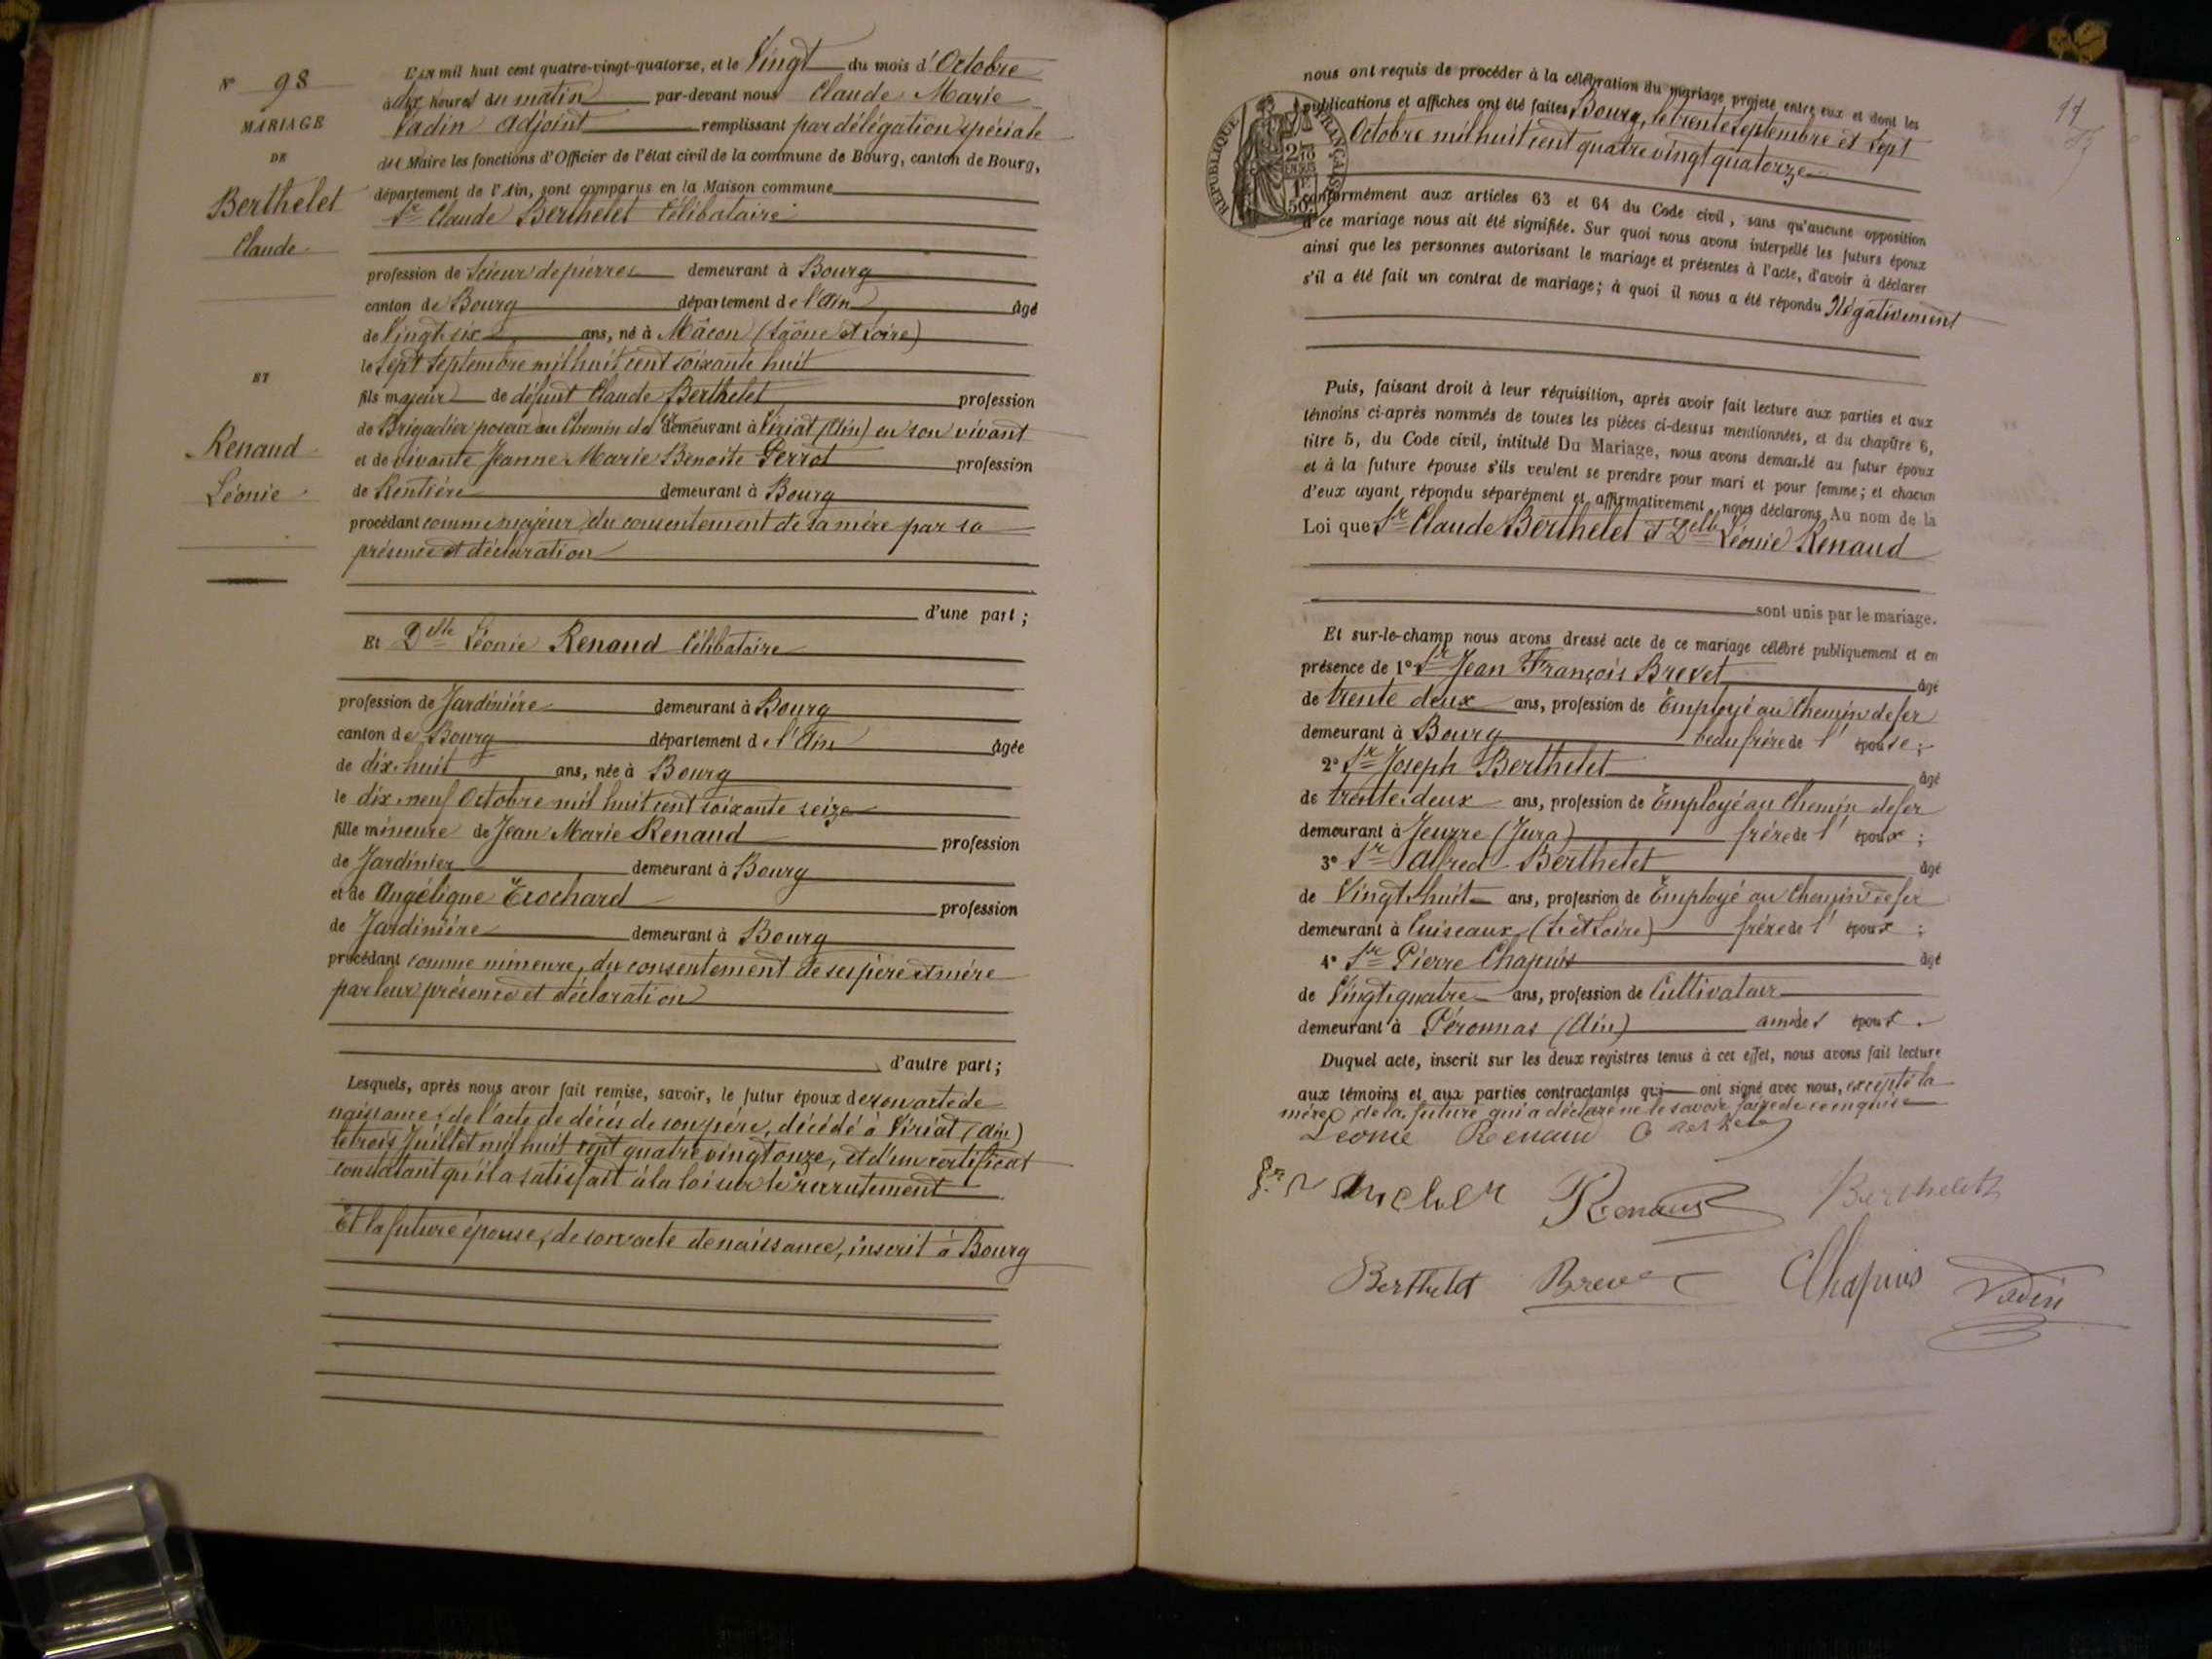 N° 98
MARIAGE
DE
Berthelet
Claude
ET
Renaud
Léonie
L'an mil huit cent quatre-vingt-quatorze, et le Vingt du mois d'Octobre
à dix heures du matin par-devant nous Claude Marie
Vadin adjoint remplissant par délégation spéciale
du Maire les fonctions d'Officier de l'état civil de la commune de Bourg, canton de Bourg,
département de l'Ain, sont comparus en la Maison commune
Sr Claude Berthelet Célibataire
profession de Scieur de pierres demeurant à Bourg
canton de Bourg département de l'Ain âgé
de Vingt six ans, né à Mâcon (Saône et Loire)
le sept septembre mil huit cent soixante huit
fils majeur de défunt Claude Berthelet profession
de Brigadier poseur au Chemin de fer demeurant à Viriat (Ain) en son vivant
et de vivante Jeanne Marie Benoite Perrot profession
de Rentière demeurant à Bourg
procédant comme majeur du consentement de sa mère par sa
présence et déclaration
d'une part ;
Et Delle Léonie Renaud Célibataire
profession de Jardinière demeurant à Bourg
canton de Bourg département de l'Ain âgée
de dix-huit ans, née à Bourg
le dix-neuf Octobre mil huit cent soixante seize
fille mineure de Jean Marie Renaud profession
de Jardinier demeurant à Bourg
et de Angélique Ecochard profession
de Jardinière demeurant à Bourg
procédant comme mineure, du consentement de ses père et mère
par leur présence et déclaration
d'autre part ;
Lesquels, après nous avoir fait remise, savoir, le futur époux de son acte de
naissance, de l'acte de décès de son père, décédé à Viriat (Ain)
le trois Juillet mil huit cent quatre vingt onze, et d'un certificat
constatant qu'il a satisfait à la loi sur le recrutement
Et la future épouse, de son acte de naissance, inscrit à Bourg
11
nous ont requis de procéder à la célébration du mariage projeté entre eux et dont les
publications et affiches ont été faites Bourg, le trente Septembre et sept
Octobre mil huit cent quatre vingt quatorze
REPUBLIQUE FRANÇAISE
conformément aux articles 63 et 64 du Code civil, sans qu'aucune opposition
à ce mariage nous ait été signifiée. Sur quoi nous avons interpellé les futurs époux
ainsi que les personnes autorisant le mariage et présentes à l'acte, d'avoir à déclarer
s'il a été fait un contrat de mariage ; à quoi il nous a été répondu Négativement
Puis, faisant droit à leur réquisition, après avoir fait lecture aux parties et aux
témoins ci-après nommés de toutes les pièces ci-dessus mentionnées, et du chapitre 6,
titre 5, du Code civil, intitulé Du Mariage, nous avons demandé au futur époux
et à la future épouse s'ils veulent se prendre pour mari et pour femme ; et chacun
d'eux ayant répondu séparément et affirmativement, nous déclarons Au nom de la
Loi que Sr Claude Berthelet et Delle Léonie Renaud
sont unis par le mariage.
Et sur-le-champ nous avons dressé acte de ce mariage célébré publiquement et en
présence de 1° Sr Jean François Brevet âgé
de trente deux ans, profession de Employé au Chemin de fer
demeurant à Bourg beau frère de l'épouse ;
2° Sr Joseph Berthelet âgé
de trente-deux ans, profession de Employé au Chemin de fer
demeurant à Jeurre (Jura) frère de l'époux ;
3° Sr Alfred Berthelet âgé
de Vingt huit ans, profession de Employé au Chemin de fer
demeurant à Cuiseaux (S. et Loire) frère de l'époux ;
4° Sr Pierre Chapuis âgé
de Vingt quatre ans, profession de Cultivateur
demeurant à Péronnas (Ain) ami des époux.
Duquel acte, inscrit sur les deux registres tenus à cet effet, nous avons fait lecture
aux témoins et aux parties contractantes qui ont signé avec nous, excepté la
mère de la future qui a déclaré ne le savoir faire de ce enquise
Léonie Renaud
Renaud Berthelet
Berthelet Brevet Chapuis Vadin